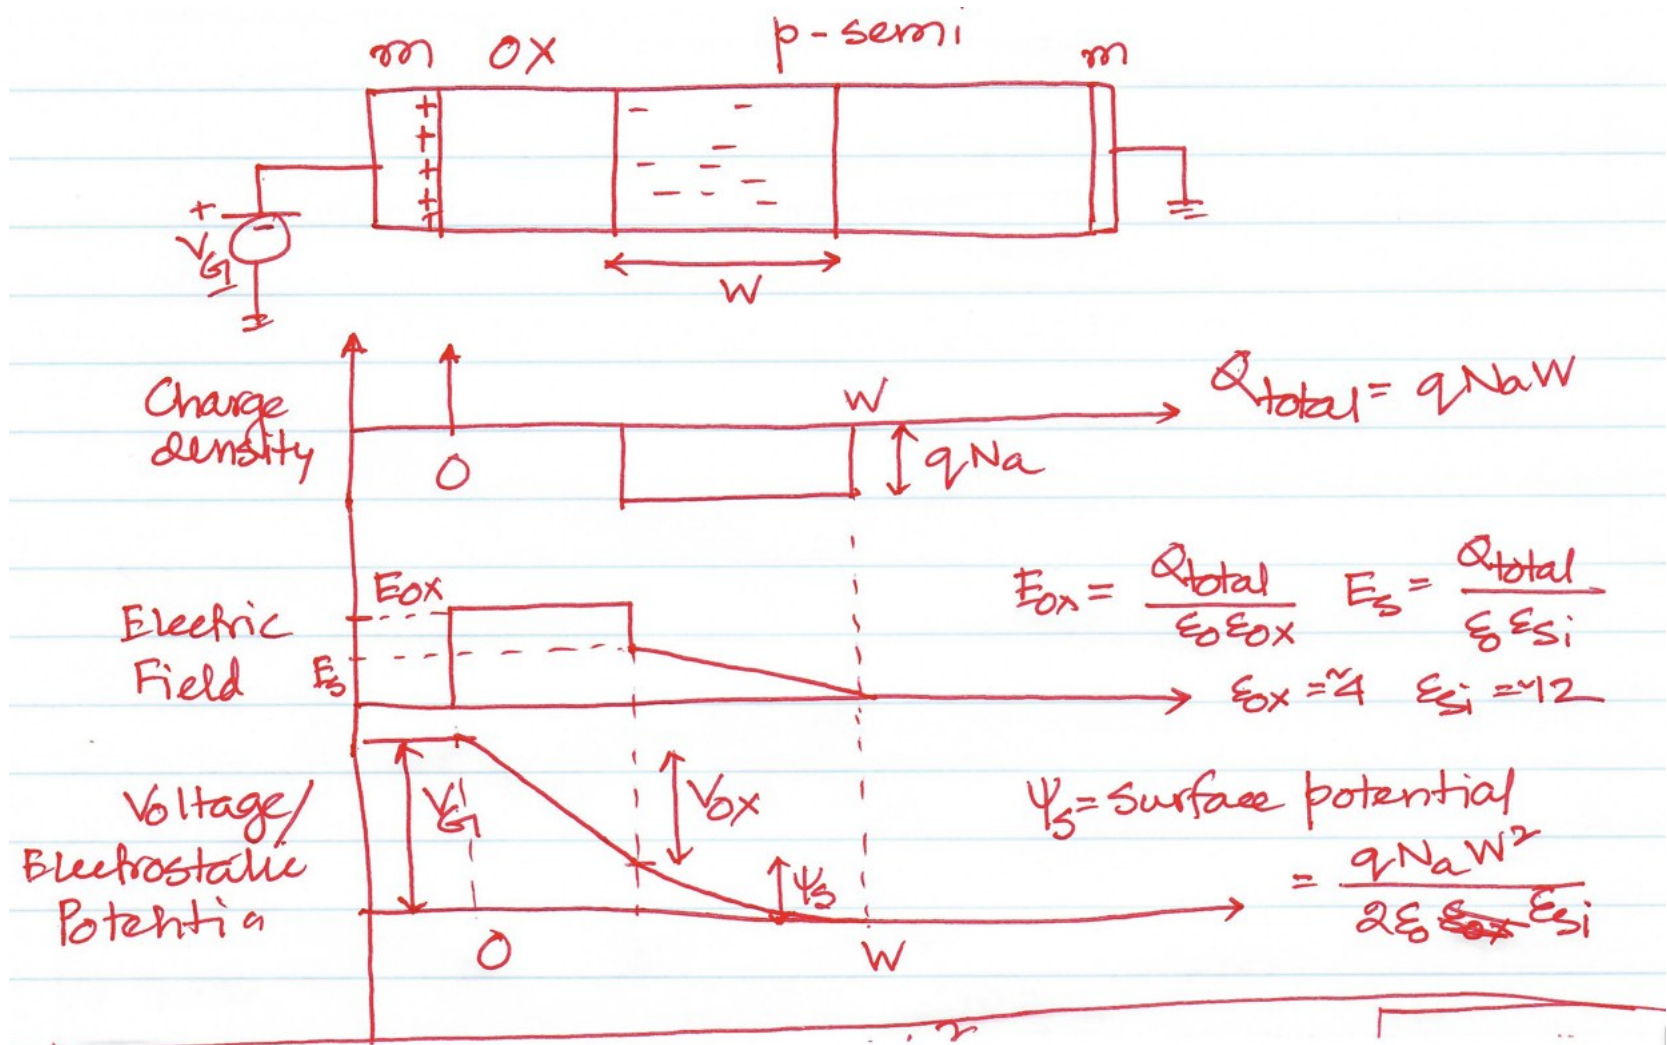 m OX p-semi m
+ - -
+ -
+ - -
+ - - -
+ -
+
-
V_G
W
Charge density
0
W
qNa
Q_total = qNaW
Electric Field
E_ox
E_s
E_ox = Q_total / ε₀ε_ox E_s = Q_total / ε₀ε_si
ε_ox = ~4 ε_si = ~12
Voltage/
Electrostatic
Potential
V_G
V_ox
ψ_s
0
W
ψ_s = surface potential
= qN_aW² / 2ε₀ ε_si